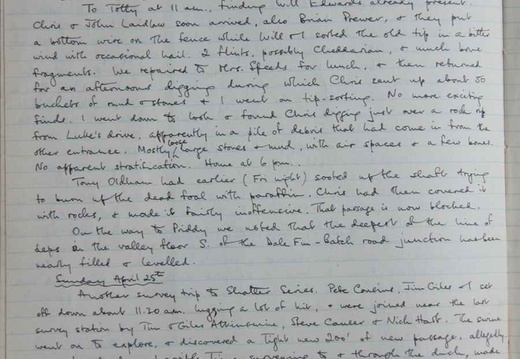 To Totty at 11 a.m., finding Will Edwards already present.
Chris & John Laidlaw soon arrived, also Brian Prewer, & they put
a bottom wire on the fence while Will & I sorted the old tip in a bitter
wind with occasional hail. 2 flints, possibly Cheddarian, & much bone
fragments. We repaired to Mrs. Speeds for lunch, & then returned
for an afternoons digging during which Chris sent up about 50
buckets of mud & stones & I went on tip-sorting. No more exciting
finds. I went down to look & found Chris digging just over a rock rib
from Luke's drive, apparently in a pile of debris that had come in from the
other entrance. Mostly large stones & mud, with air spaces & a few bones.
No apparent stratification. Home at 6 pm.
Tony Oldham had earlier (Fri night) sooted up the shaft trying
to burn up the dead foal with paraffin. Chris had then covered it
with rocks, & made it fairly inoffensive. That passage is now blocked.
On the way to Priddy we noted that the deepest of the line of
deps in the valley floor S. of the Dale Fm-Batch road junction has been
nearly filled & levelled.
Sunday April 25th
Another survey trip to Shatter Series. Pete Cousins, Jim Giles & I set
off down about 11.20 am. lugging a lot of kit, & were joined near the last
survey station by Tim & Giles Atkinson, Steve & Nick Hart. The
went on to explore, & discovered a tight new 200' of new passage, allegedly
surveying to & through the duck, made